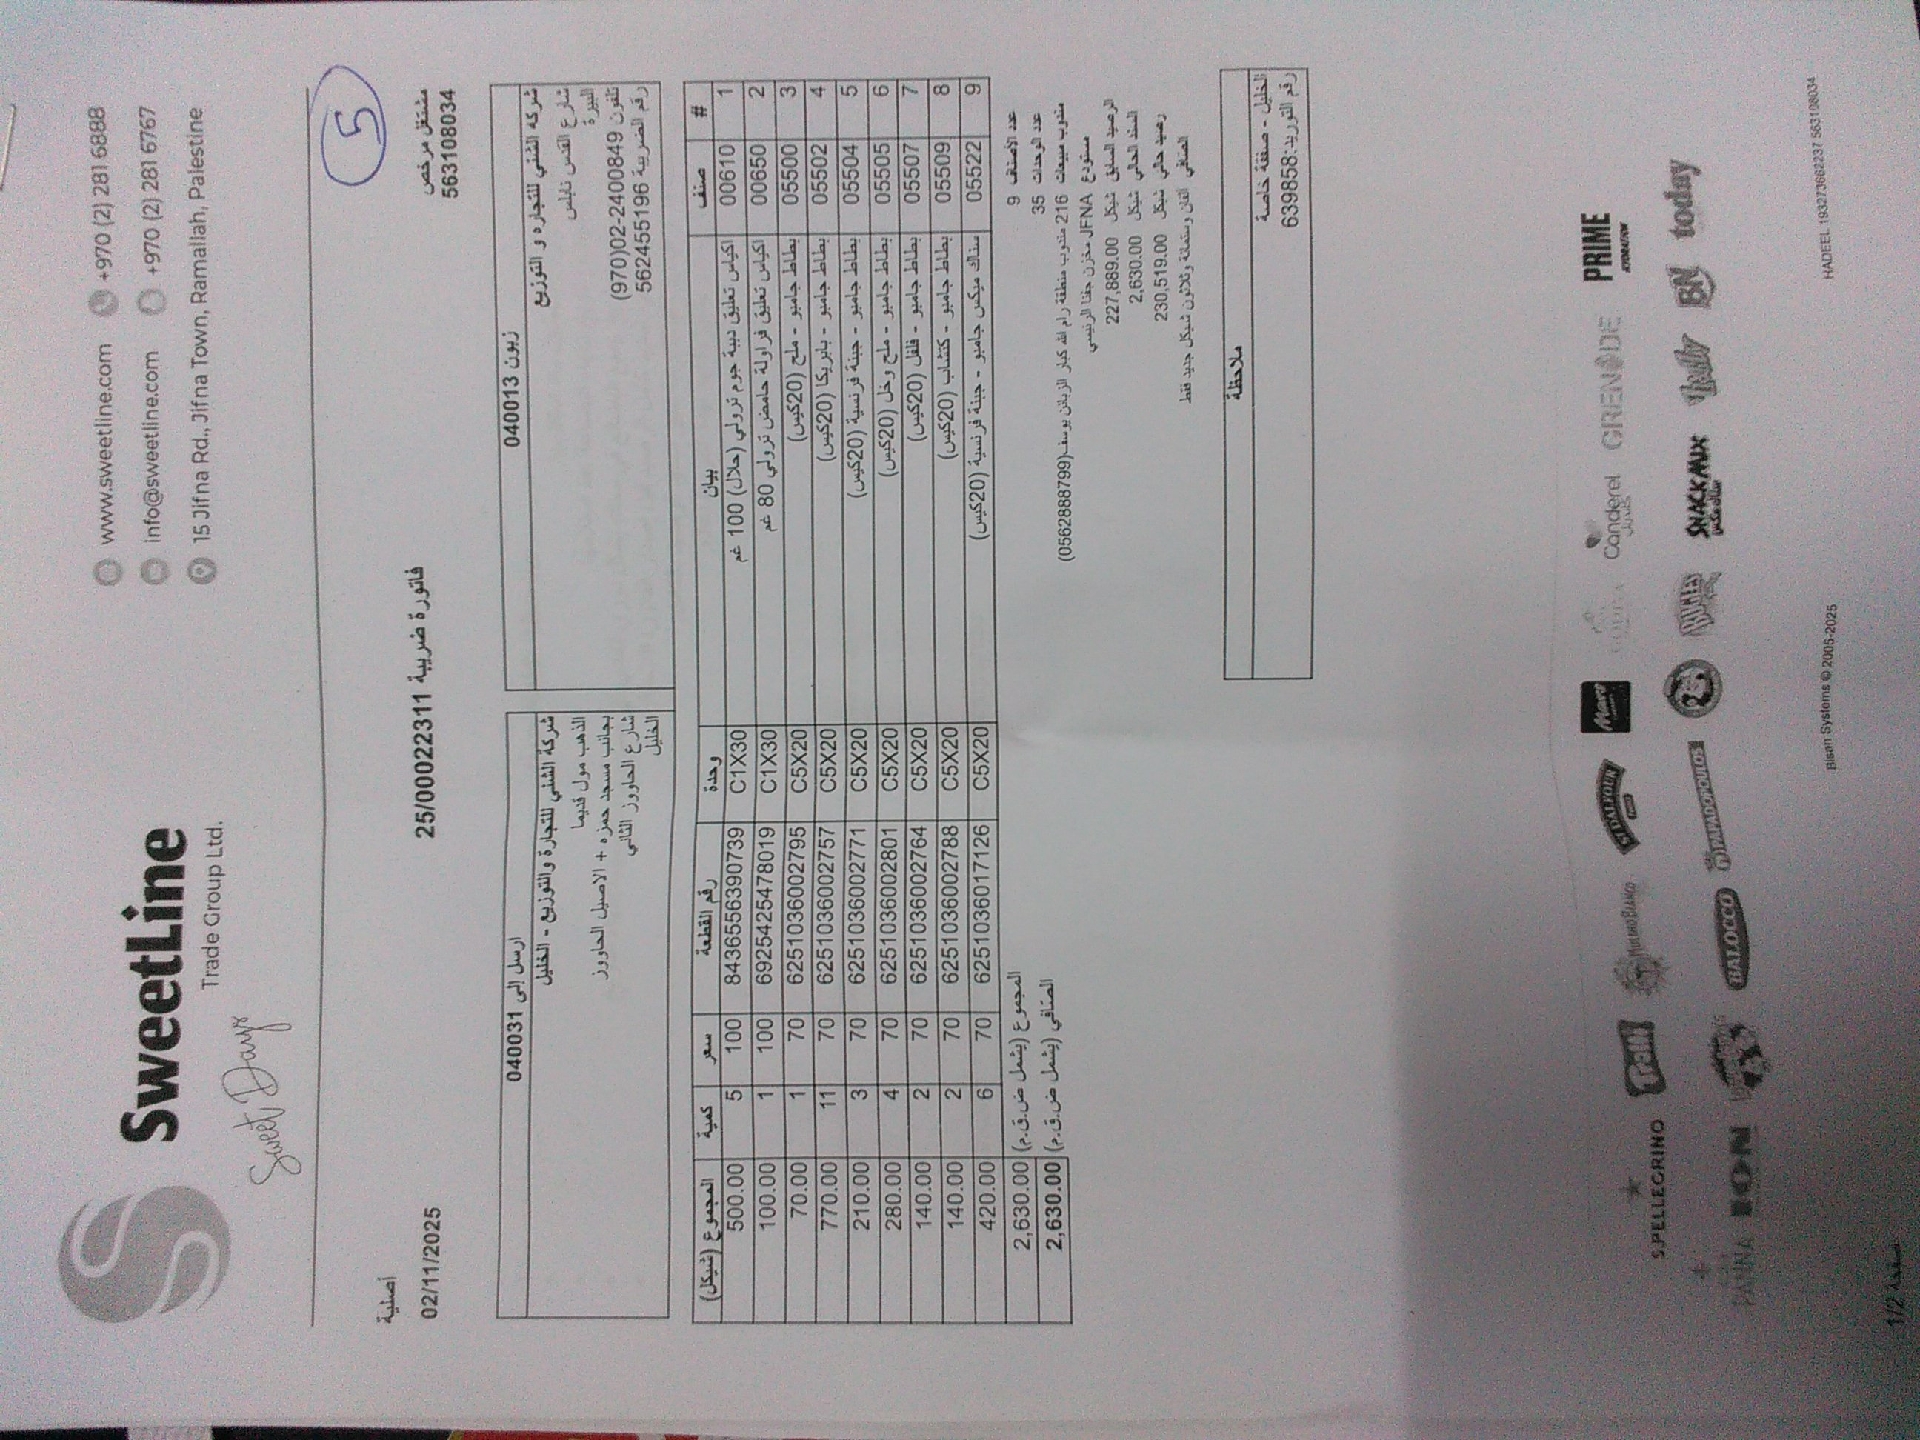 SweetLine
Trade Group Ltd.
Sweet Days
www.sweetline.com +970 (2) 281 6888
info@sweetline.com +970 (2) 281 6767
15 Jifna Rd., Jifna Town, Ramallah, Palestine
5
أصلية
مشتغل مرخص
02/11/2025
فاتورة ضريبية 25/00022311
563108034
زبون 040013
شركة الشني للتجاره و التوزيع
شارع القدس نابلس
البيرة
تلفون 02-2400849(970)
رقم الضريبة 562455196
ارسل إلى 040031
شركة الشني للتجارة والتوزيع - الخليل
الذهب مول قديما
بجانب مسجد حمزه + الاصيل الحاووز
شارع الحاووز الثاني
الخليل
# صنف بيان وحدة رقم القطعة سعر كمية المجموع (شيكل)
1 00610 اكياس تعليق دببة جوم ترولي (حلال) 100 غم C1X30 8436556390739 100 5 500.00
2 00650 اكياس تعليق فراولة حامض ترولي 80 غم C1X30 6925425478019 100 1 100.00
3 05500 بطاط جامبو - ملح (20كيس) C5X20 6251036002795 70 1 70.00
4 05502 بطاط جامبو - بابريكا (20كيس) C5X20 6251036002757 70 11 770.00
5 05504 بطاط جامبو - جبنة فرنسية (20كيس) C5X20 6251036002771 70 3 210.00
6 05505 بطاط جامبو - ملح وخل (20كيس) C5X20 6251036002801 70 4 280.00
7 05507 بطاط جامبو - فلفل (20كيس) C5X20 6251036002764 70 2 140.00
8 05509 بطاط جامبو - كتشاب (20كيس) C5X20 6251036002788 70 2 140.00
9 05522 سناك ميكس جامبو - جبنة فرنسية (20كيس) C5X20 6251036017126 70 6 420.00
المجموع (يشمل ض.ق.م) 2,630.00
الصافي (يشمل ض.ق.م) 2,630.00
عدد الأصناف 9
عدد الوحدات 35
مندوب مبيعات 216 مندوب منطقة رام الله كبار الزبائن يوسف(0562888799)
مستودع JFNA مخزن جفنا الرئيسي
الرصيد السابق شيكل 227,889.00
السند الحالي شيكل 2,630.00
رصيد حالي شيكل 230,519.00
الصافي الفان وستمائة وثلاثون شيكل جديد فقط
ملاحظة
الخليل - صفقة خاصة
رقم التوريد:639858
S.PELLEGRINO
Trolli
MULINO BIANCO
Canderel
كاندريل
GRENADE
PRIME
HYDRATION
PANNA
ION
BALOCCO
PAPADOPOULOS
SNACK MIX
سناك مكس
BN
today
صفحة 1/2
Bisan Systems © 2005-2025
HADEEL 193273662237 563108034